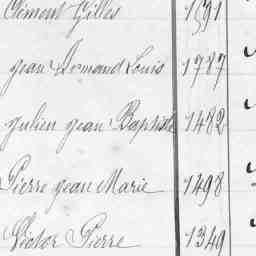 Clément Gilles 1591
Jean Armand Louis 1787
Julien Jean Baptiste 1482
Pierre Jean Marie 1498
Victor Pierre 1349